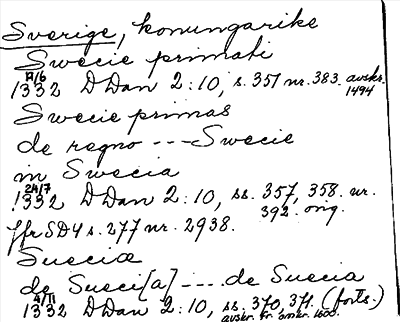 Sverige, konungarike
Swecie primati
17/6
1332 DDan 2:10, s. 351 nr. 383. avskr. 1494
Swecie primas
de regno --- Swecie
in Swecia
24/7
1332 DDan 2:10, ss. 357, 358. nr. 392. orig.
Jfr SD4 s. 277 nr. 2938.
Sueciæ
de Sueci[a] ---- de Suecia
4/11
1332 DDan 2:10, ss. 370, 371. (forts.)
avskr. fr. omkr. 1600.